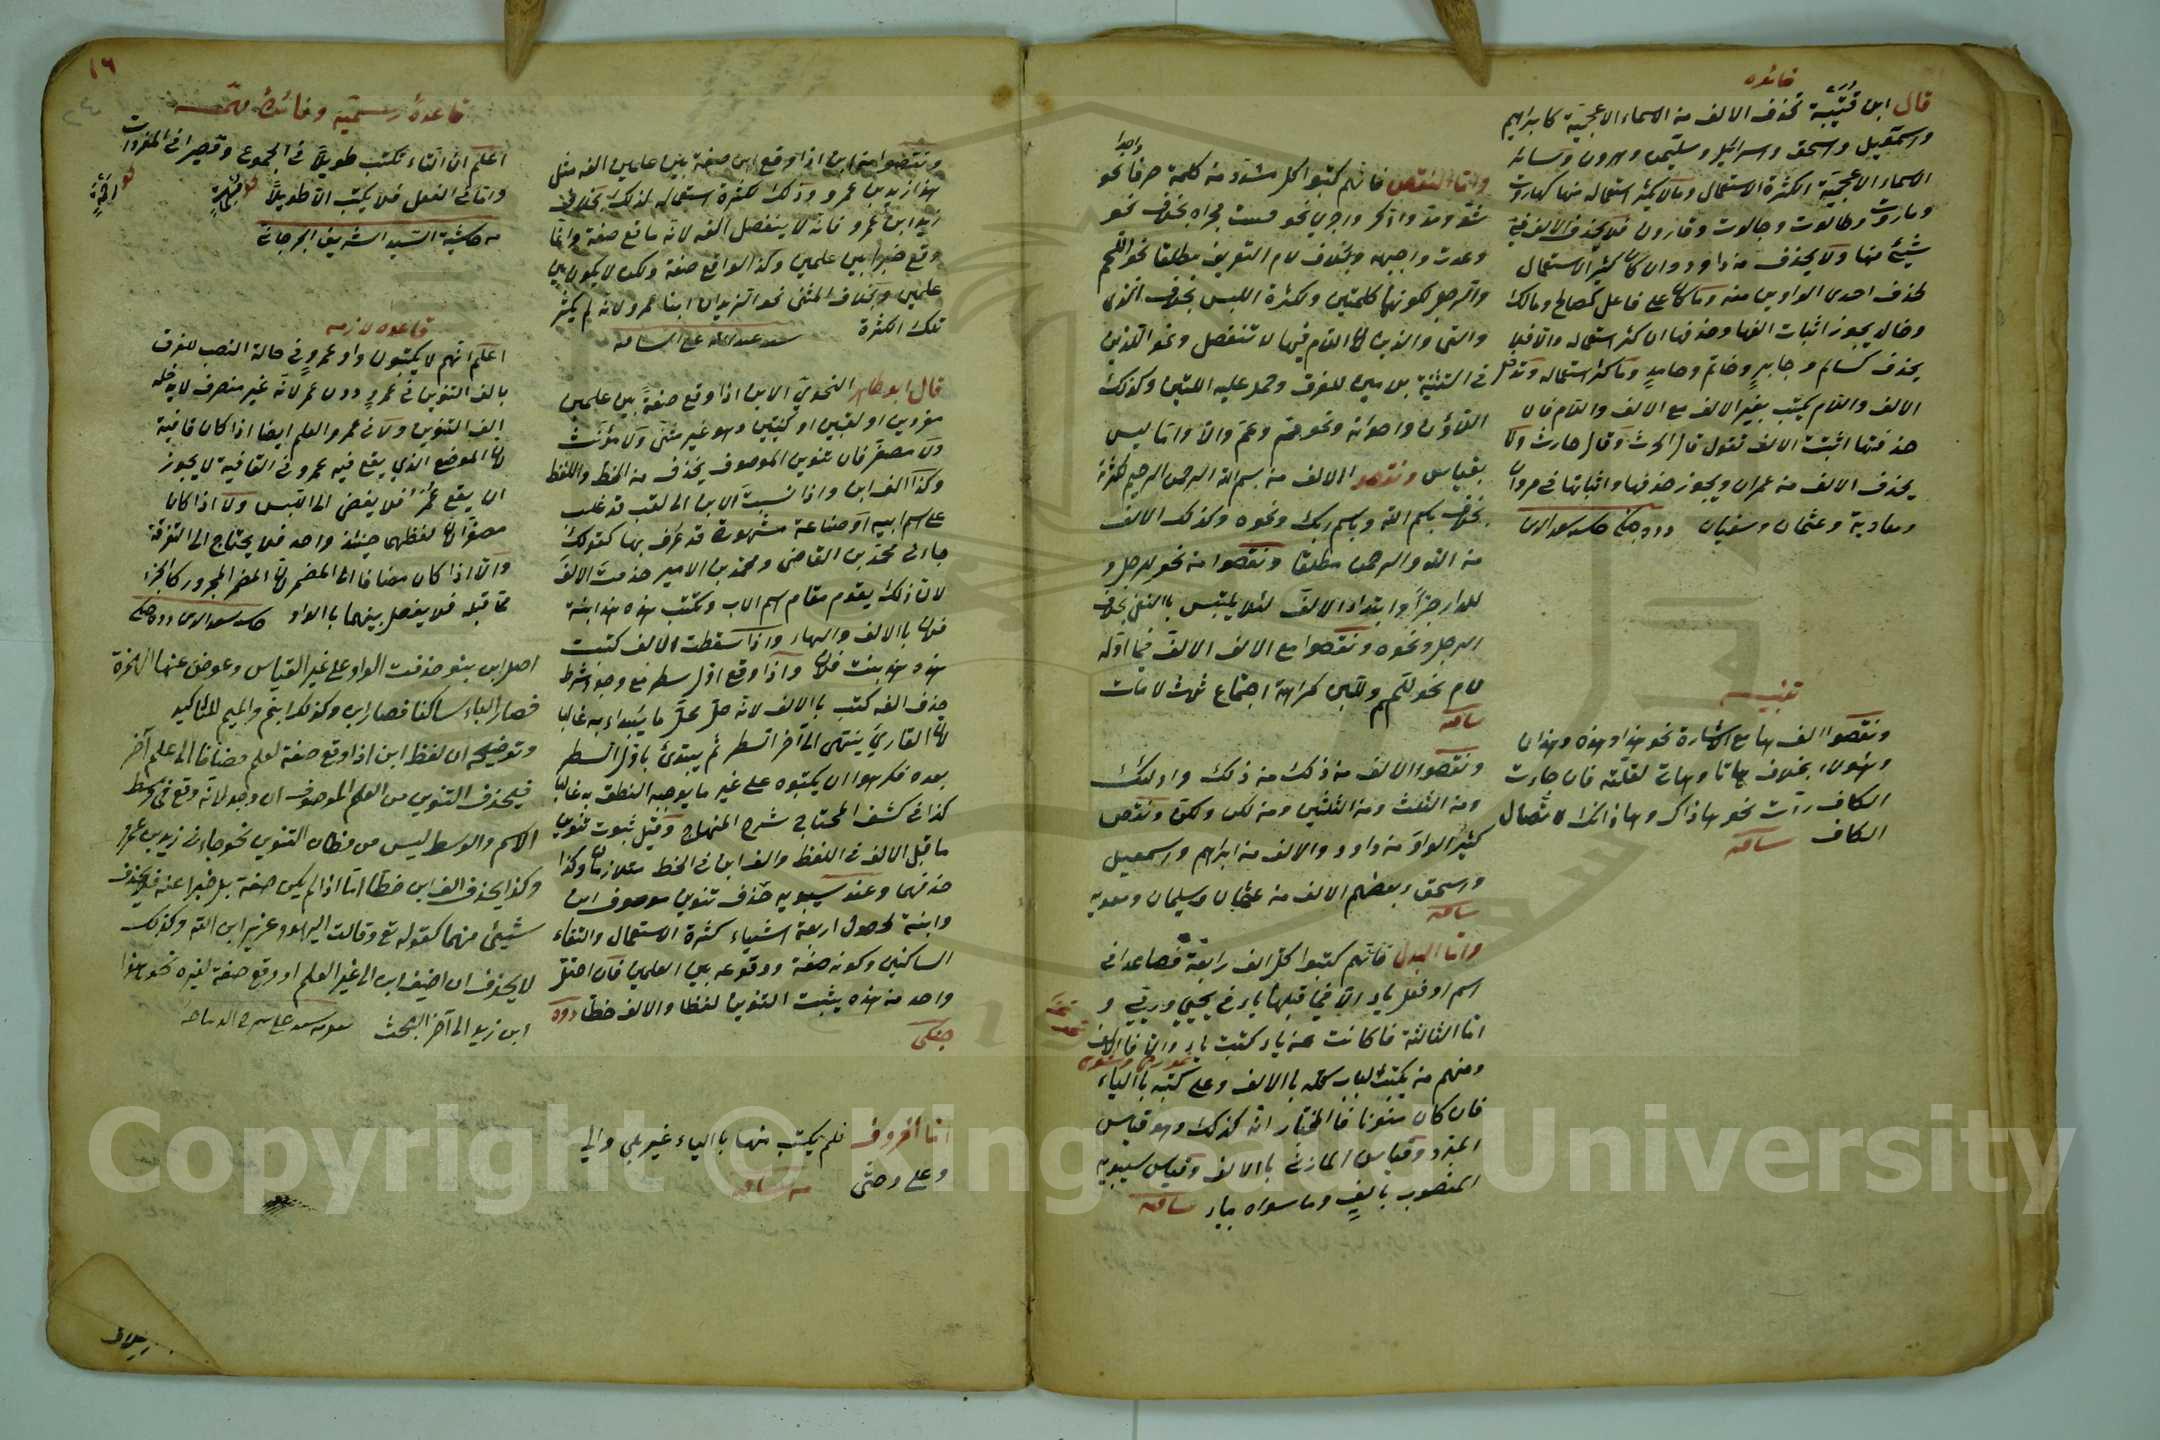 فائده
قال ابن قتيبة تحذف الالف من الاسماء الاعجمية كابراهيم
واسمعيل واسحق واسرائيل وسليمن وهرون وسائر
الاسماء الاعجمية لكثرة الاستعمال وما لا يكثر استعماله منها كهاروت
وماروت وطالوت وجالوت وقارون فلا يحذف الالف في
شيئ منها ولا يحذف من داود وان كان كثير الاستعمال
لحذف احدى الواوين منه وما كان على فاعل كصالح ومالك
وخالد يجوز اثبات الفها وحذفها ان كثر استعماله والا فلا
يحذف كسالم وجابر وخاتم وحامد وما كثر استعماله وتدخل
الالف واللام يكتب بغير الالف مع الالف واللام فان
حذفتها اثبتت الالف تقول قال الحرث وقال حارث ولا
يحذف الالف من عمران ويجوز حذفها واثباتها في مروان
ومعاوية وعثمان وسفيان
تنبيه
ونقصوا الف ها مع الاشارة نحو هذا وهذه وهذان
وهؤلاء بخلاف هاتا وهاتى لقلته فان جاءت
الكاف ردت نحو هاذاك وهاذانك لاتصال
الكاف شافيه
واحدا
واما النقص فانهم كتبوا كل مشدد من كلمة حرفا نحو
شد ومد وادكر واجرى نحو قتت مجراه بخلاف نحو
وعدت واجبهه وبخلاف لام التعريف مطلقا نحو اللحم
والرجل لكونهما كلمتين ولكثرة اللبس بخلاف الذى
والتى والذين لان اللام فيها لا تنفصل ونحو اللذين
في التثنية بلامين للفرق وحمل عليه اللتين وكذلك
اللاؤن واخواته ونحو عم وممّ والا واما ليس
بقياس ونقصوا الالف من بسم الله الرحمن الرحيم لكثرته
بخلاف باسم الله وباسم ربك ونحوه وكذلك الالف
من الله والرحمن مطلقا ونقصوا من نحو للرجل و
للدار جرا وابتداء الالف لئلا يلتبس بالنفي بخلاف
الرجل ونحوه ونقصوا مع الالف الالف فيما اوله
لام نحو للحم وللبن كراهة اجتماع ثلاث لامات
شافيه
ونقصوا الالف من ذلك من ذلك واولئك
ومن الثلث ومن الثلثين ومن لكن ولكن ونقص
كثير الواو من داود والالف من ابراهيم واسمعيل
واسحق وبعضهم الالف من عثمان وسليمان ومعويه
شافيه
واما البدل فانهم كتبوا كل الف رابعة فصاعدا في
اسم او فعل ياء الا فيما قبلها ياء في يحيى وريي و
اما الثالثة فان كانت عن ياء كتبت ياء والا فالالف
ومنهم من يكتب الباب كله بالالف وعلى كتبه بالياء
فان كان منونا فالمختار انه كذلك وهو قياس
المبرد وقياس المازنى بالالف وقياس سيبويه
المنصوب بالف وما سواه بياء شافيه
١٦
ونقصوا من ابن اذا وقع ابن صفة بين علمين الفه مثل
هذا زيد بن عمرو وذلك لكثرة استعماله لذلك بخلاف
زيد ابن عمرو فانه لا ينفصل الفه لانه ما وقع صفة وانما
وقع خبرا بين علمين وكذا الواقع صفة ولكن لا يكون بين
علمين وبخلاف المثنى نحو الزيدان ابنا عمرو لانه لم يكثر
تلك الكثرة
قال ابو طاهر النحوي الابن اذا وقع صفة بين علمين
مفردين او لقبين او كنيتين وهو غير مثنى ولا مؤنث
ولا مصغر فان تنوين الموصوف يحذف من الخط واللفظ
وكذا الف ابن واذا نسبت الابن الى لقب قد غلب
على اسم ابيه او صناعة مشهورة قد عرف بها كقولك
جاءنى محمد بن القاضى ومحمد بن الامير حذفت الالف
لان ذلك يقوم مقام اسم الاب وتكتب هذه هند ابنة
فلان بالالف والهاء واذا سقطت الالف كتبت
هذه هند بنت فلان واذا وقع اول سطر مع وجود شرط
حذف الفه كتب بالالف لانه حل محل ما يبتداء به غالبا
لان القارى ينتهى الى آخر السطر ثم يبتدئ باول السطر
بعده فكرهوا ان يكتبوه على غير ما يوجبه النطق به غالبا
كذا في كشف المحتاج شرح المنهاج وقيل ثبوت تنوين
ما قبل الالف في اللفظ والف ابن في الخط متلازمان وكذا
حذفهما وعند سيبويه حذف تنوين موصوف ابن
وابنة لحصول اربعة اشياء كثرة الاستعمال والتقاء
الساكنين وكونه صفة ووقوعه بين العلمين فان اختل
واحد من هذه يثبت التنوين لفظا والالف خطا دده
جنكى
اما الحروف فلم يكتب منها بالياء غير بلى والى
وعلى وحتى من شافيه
قاعدة رسمية وفائدة مهمه
اعلم ان التاء تكتب طويلا في الجموع وقصيرا في المفردات
واما في الفعل فلا يكتب الا طويلا
من حاشية السيد الشريف الجرجانى
قاعده لازمه
اعلم انهم لا يكتبون واو عمرو في حالة النصب للفرق
بالف التنوين في عمرو دون عمر لانه غير منصرف لا يدخله
الف التنوين ولا في عمر والعلم ايضا اذا كان قافية
لان الموضع الذي يقع فيه عمرو في القافية لا يجوز
ان يقع عمر فلا يفضى الى اللبس ولا اذا كان
مصغرا لان لفظهما حينئذ واحد فلا يحتاج الى التفرقة
ولا اذا كان مضافا الى المضمر لان المضمر المجرور كالجزء
مما قبله فلا يفصل بينهما بالواو
اصل ابن بنو حذفت الواو على غير القياس وعوض عنها الهمزة
فصار الباء ساكنا فصار ابن وكذلك ابنم والميم للتاكيد
وتوضيحه ان لفظ ابن اذا وقع صفة لعلم مضافا الى علم آخر
فيحذف التنوين من العلم الموصوف ان وجد لانه وقع في وسط
الاسم والوسط ليس من مظان التنوين نحو جاءنى زيد بن عمرو
وكذا يحذف الف ابن خطا اما اذا لم يكن صفة بل خبرا عنه فلا يحذف
شيئ منهما كقوله تع وقالت اليهود عزير ابن الله وكذلك
لا يحذف ان اضيف ابن الى غير العلم او وقع صفة لغيره نحو هذا
ابن زيد الى آخر البحث